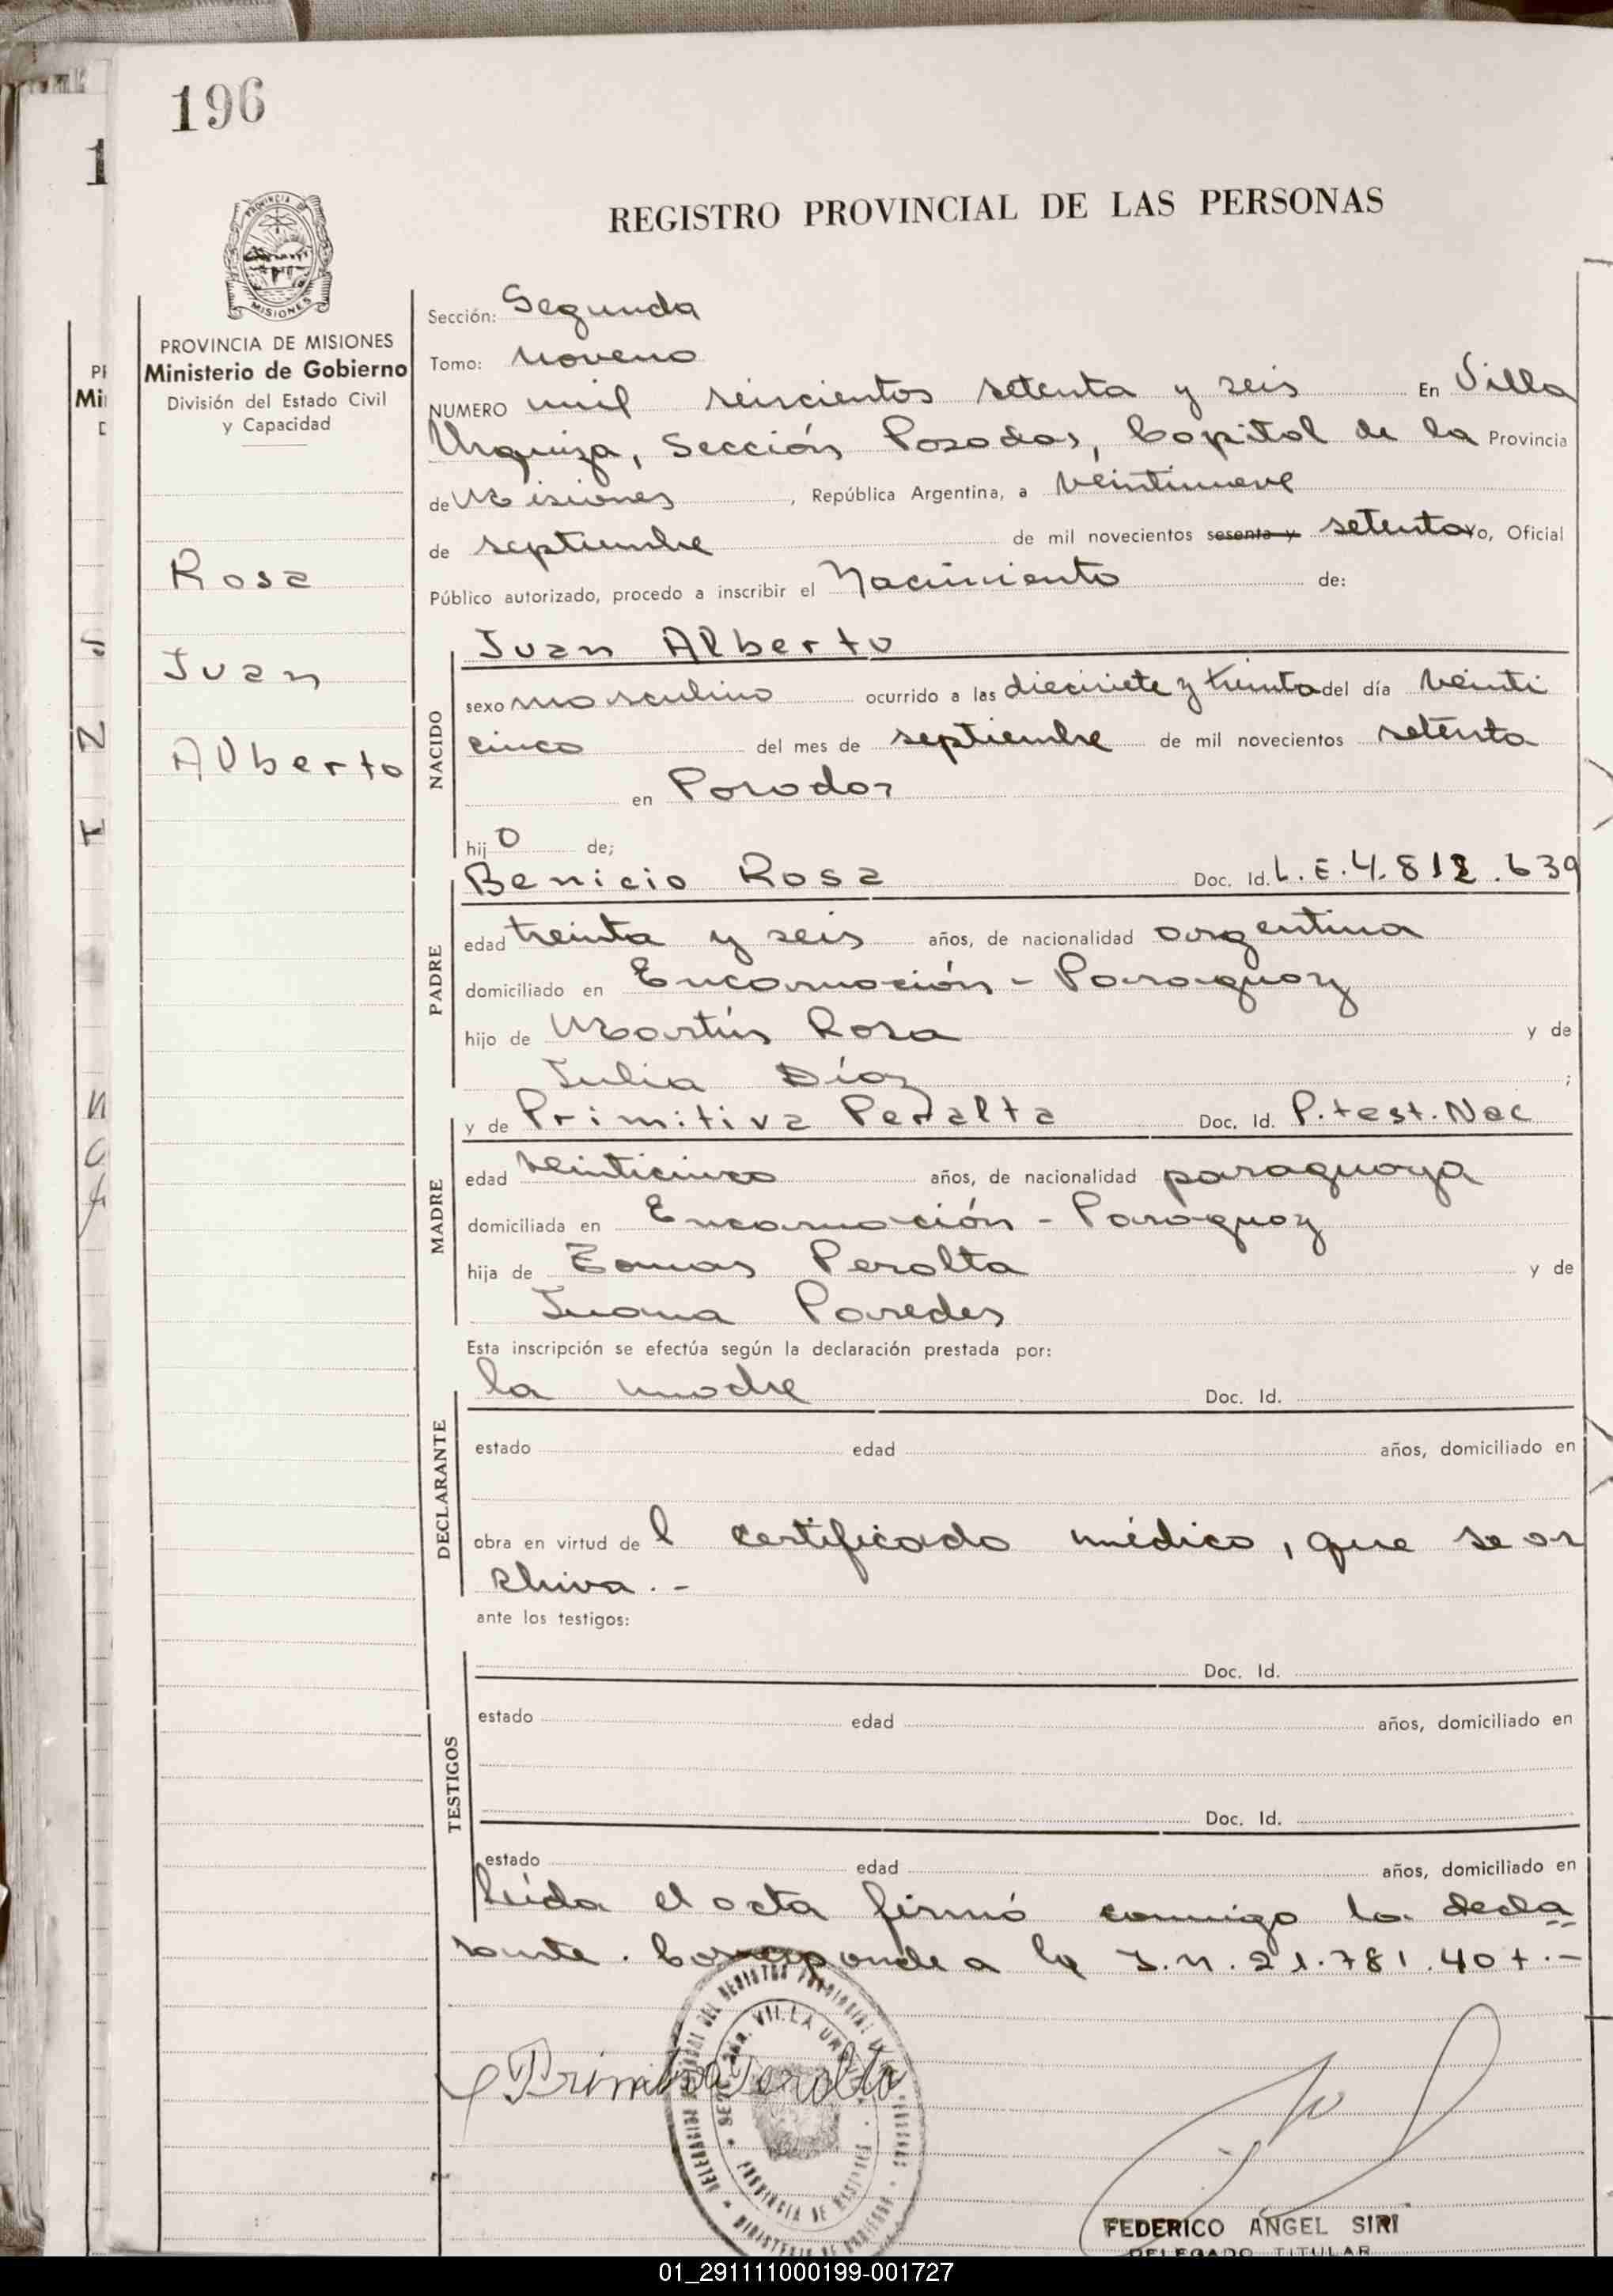 196
1
PROVINCIA DE
MISIONES
REGISTRO PROVINCIAL DE LAS PERSONAS
PROVINCIA DE MISIONES
Ministerio de Gobierno
División del Estado Civil
y Capacidad
Rosa
Juan
Alberto
Sección: Segunda
Tomo: Noveno
NUMERO mil seiscientos setenta y seis En Villa
Urquiza, Sección Posadas, Capital de la Provincia
de Misiones, República Argentina, a veintinueve
de septiembre de mil novecientos sesenta y setenta yo, Oficial
Público autorizado, procedo a inscribir el Nacimiento de:
NACIDO
Juan Alberto
sexo masculino ocurrido a las diecisiete y treinta del día veinti
cinco del mes de septiembre de mil novecientos setenta
en Posadas
hijo de;
PADRE
Benicio Rosa Doc. Id. L.E.4.812.639
edad treinta y seis años, de nacionalidad argentina
domiciliado en Encarnación - Paraguay
hijo de Martín Rosa y de
Julia Díaz ;
MADRE
y de Primitiva Peralta Doc. Id. P.test.Nac
edad veinticinco años, de nacionalidad paraguaya
domiciliada en Encarnación - Paraguay
hija de Tomas Peralta y de
Juana Paredes
Esta inscripción se efectúa según la declaración prestada por:
DECLARANTE
la madre Doc. Id.
estado edad años, domiciliado en
obra en virtud del certificado médico, que se ar
chiva.-
ante los testigos:
TESTIGOS
Doc. Id.
estado edad años, domiciliado en
Doc. Id.
estado edad años, domiciliado en
Leída el acta firmó conmigo la decla
rante. Corresponde a la I.N. 21.781.407.-
Primitiva Peralta
FEDERICO ANGEL SIRI
DELEGADO TITULAR
01_291111000199-001727